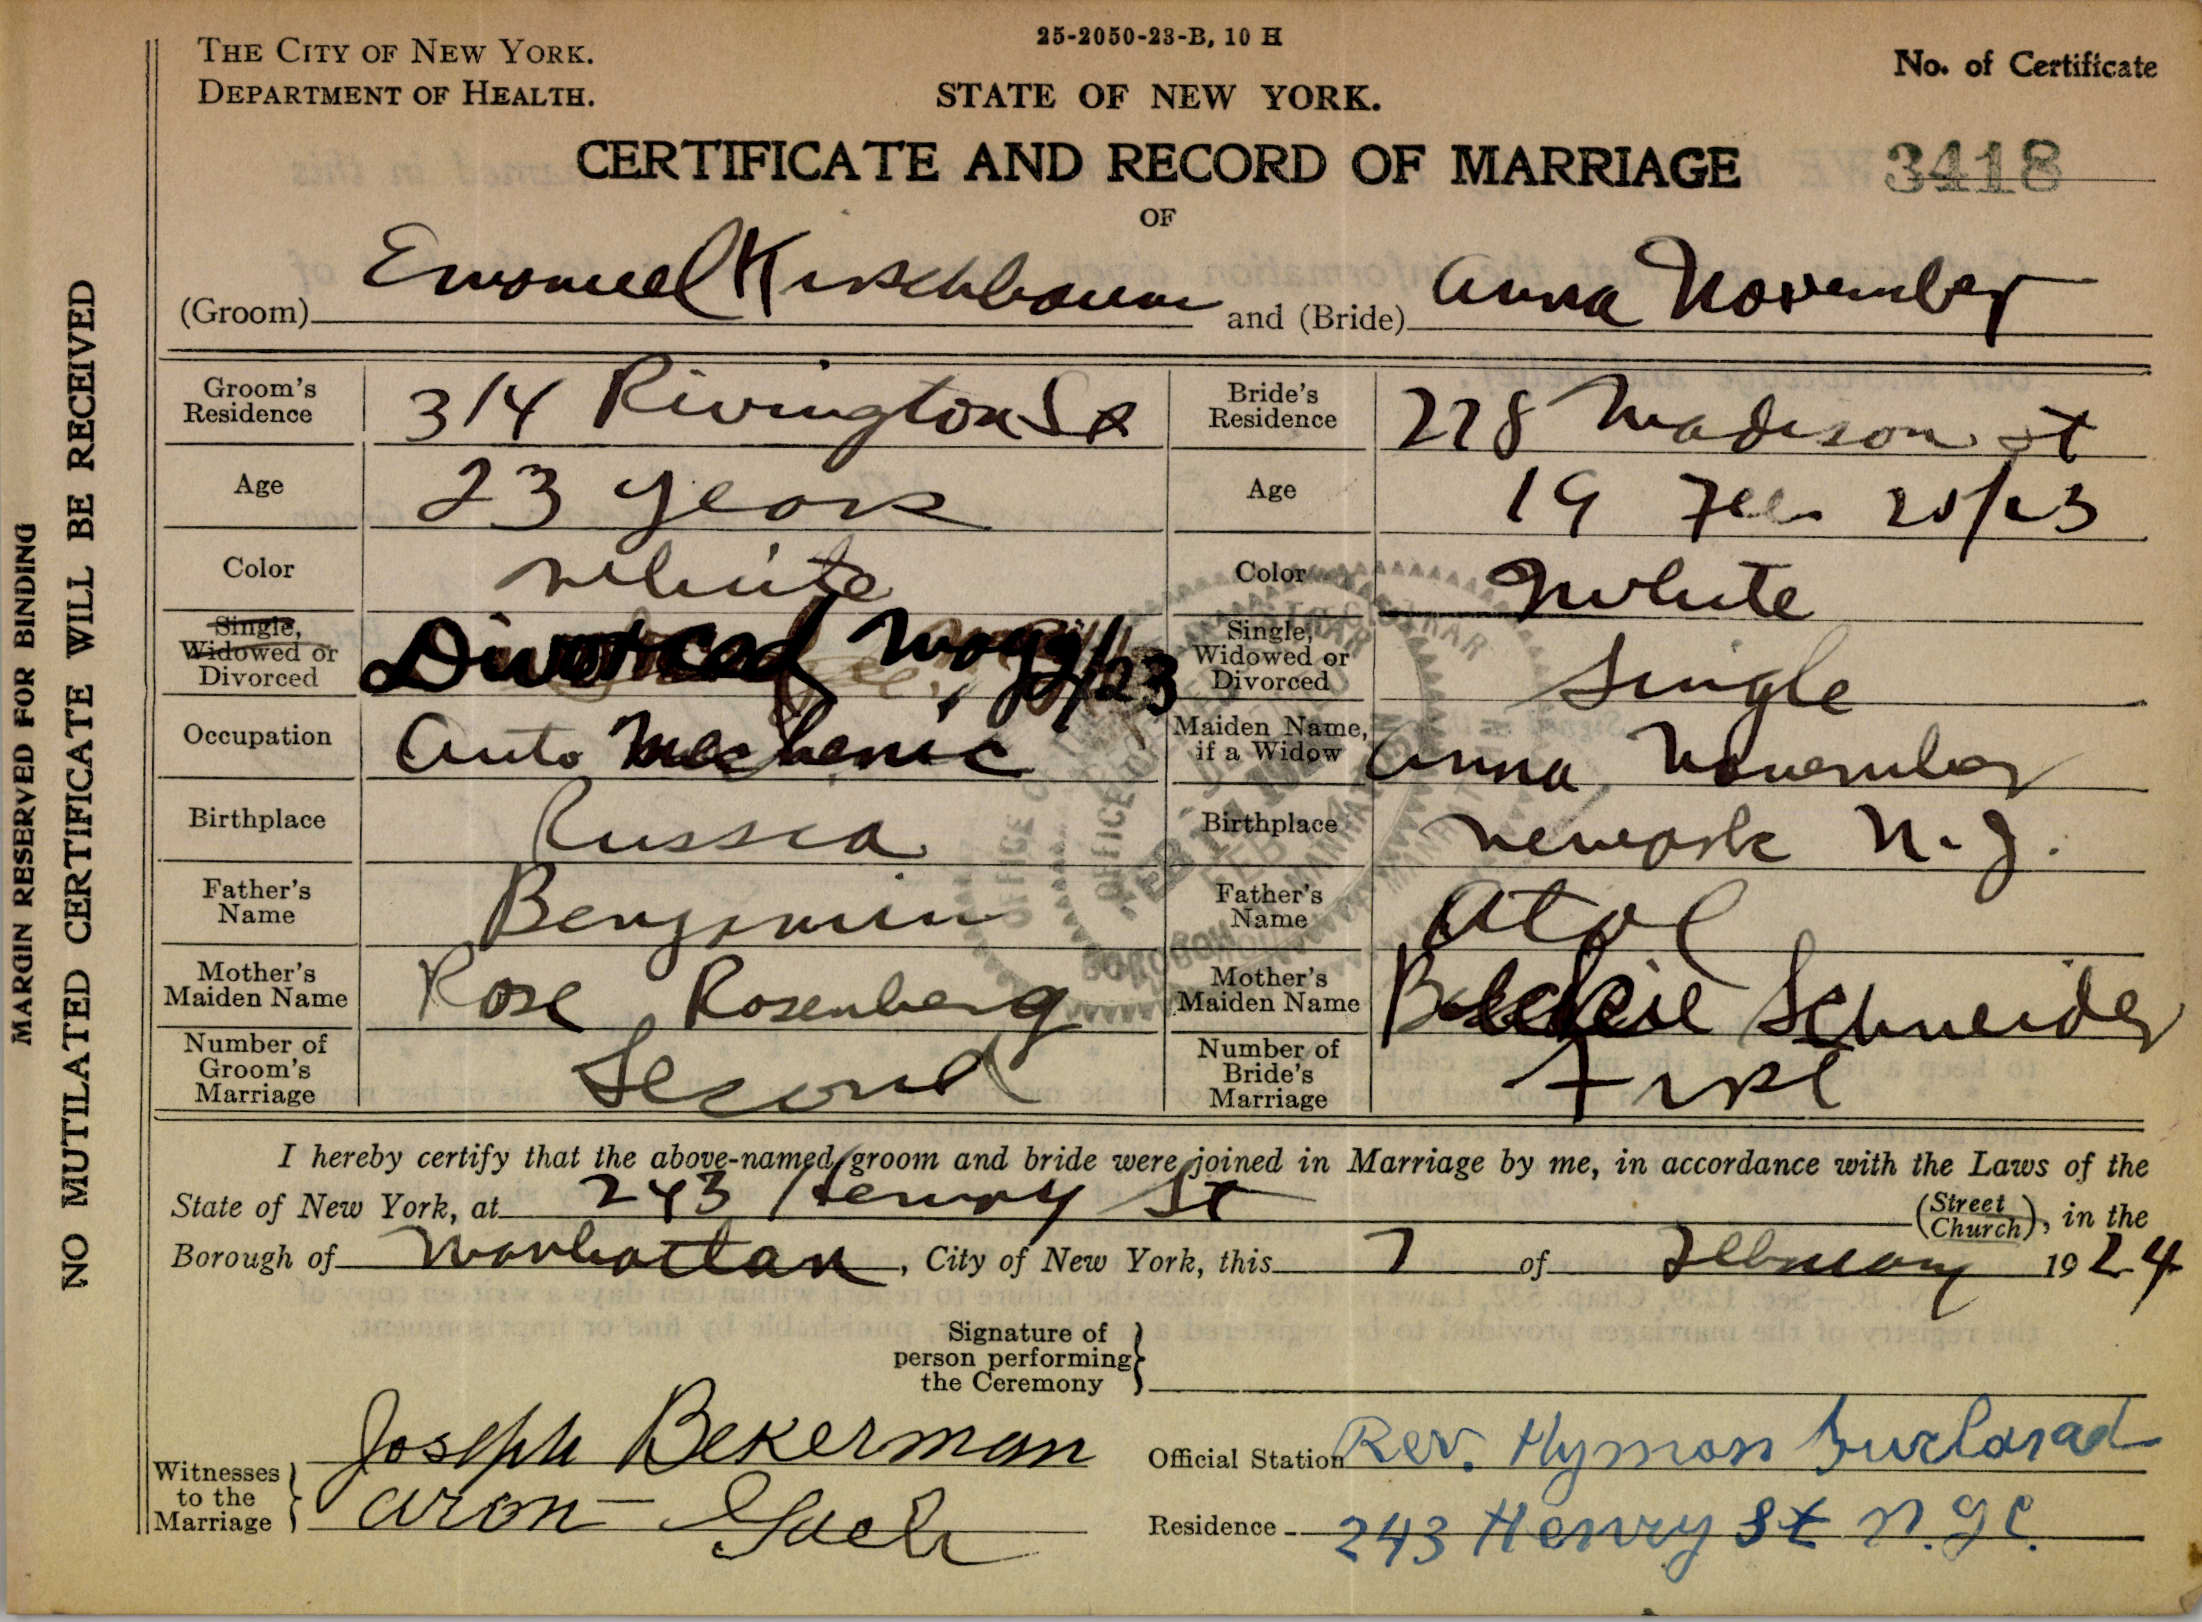 25-2050-23-B, 10 H
THE CITY OF NEW YORK.
DEPARTMENT OF HEALTH.
STATE OF NEW YORK.
No. of Certificate
CERTIFICATE AND RECORD OF MARRIAGE
3418
OF
(Groom) Emanuel Kirschbaum and (Bride) Anna November
Groom's Residence 314 Rivington St
Bride's Residence 228 Madison St
Age 23 years
Age 19 Feb 25/23
Color White
Color White
Single, Widowed or Divorced Divorced May /23
Single, Widowed or Divorced Single
Occupation Auto Mechanic
Maiden Name, if a Widow Anna November
Birthplace Russia
Birthplace Newark N.J.
Father's Name Benjamin
Father's Name
Mother's Maiden Name Rose Rosenberg
Mother's Maiden Name Beckie Schneider
Number of Groom's Marriage Second
Number of Bride's Marriage First
I hereby certify that the above-named groom and bride were joined in Marriage by me, in accordance with the Laws of the
State of New York, at 243 Henry St (Street Church), in the
Borough of Manhattan, City of New York, this 7 of February 1924
Signature of
person performing
the Ceremony
Witnesses to the Marriage
Joseph Bekerman
Aron
Official Station Rev. Hyman
Residence 243 Henry St N.Y.C.
MARGIN RESERVED FOR BINDING
NO MUTILATED CERTIFICATE WILL BE RECEIVED